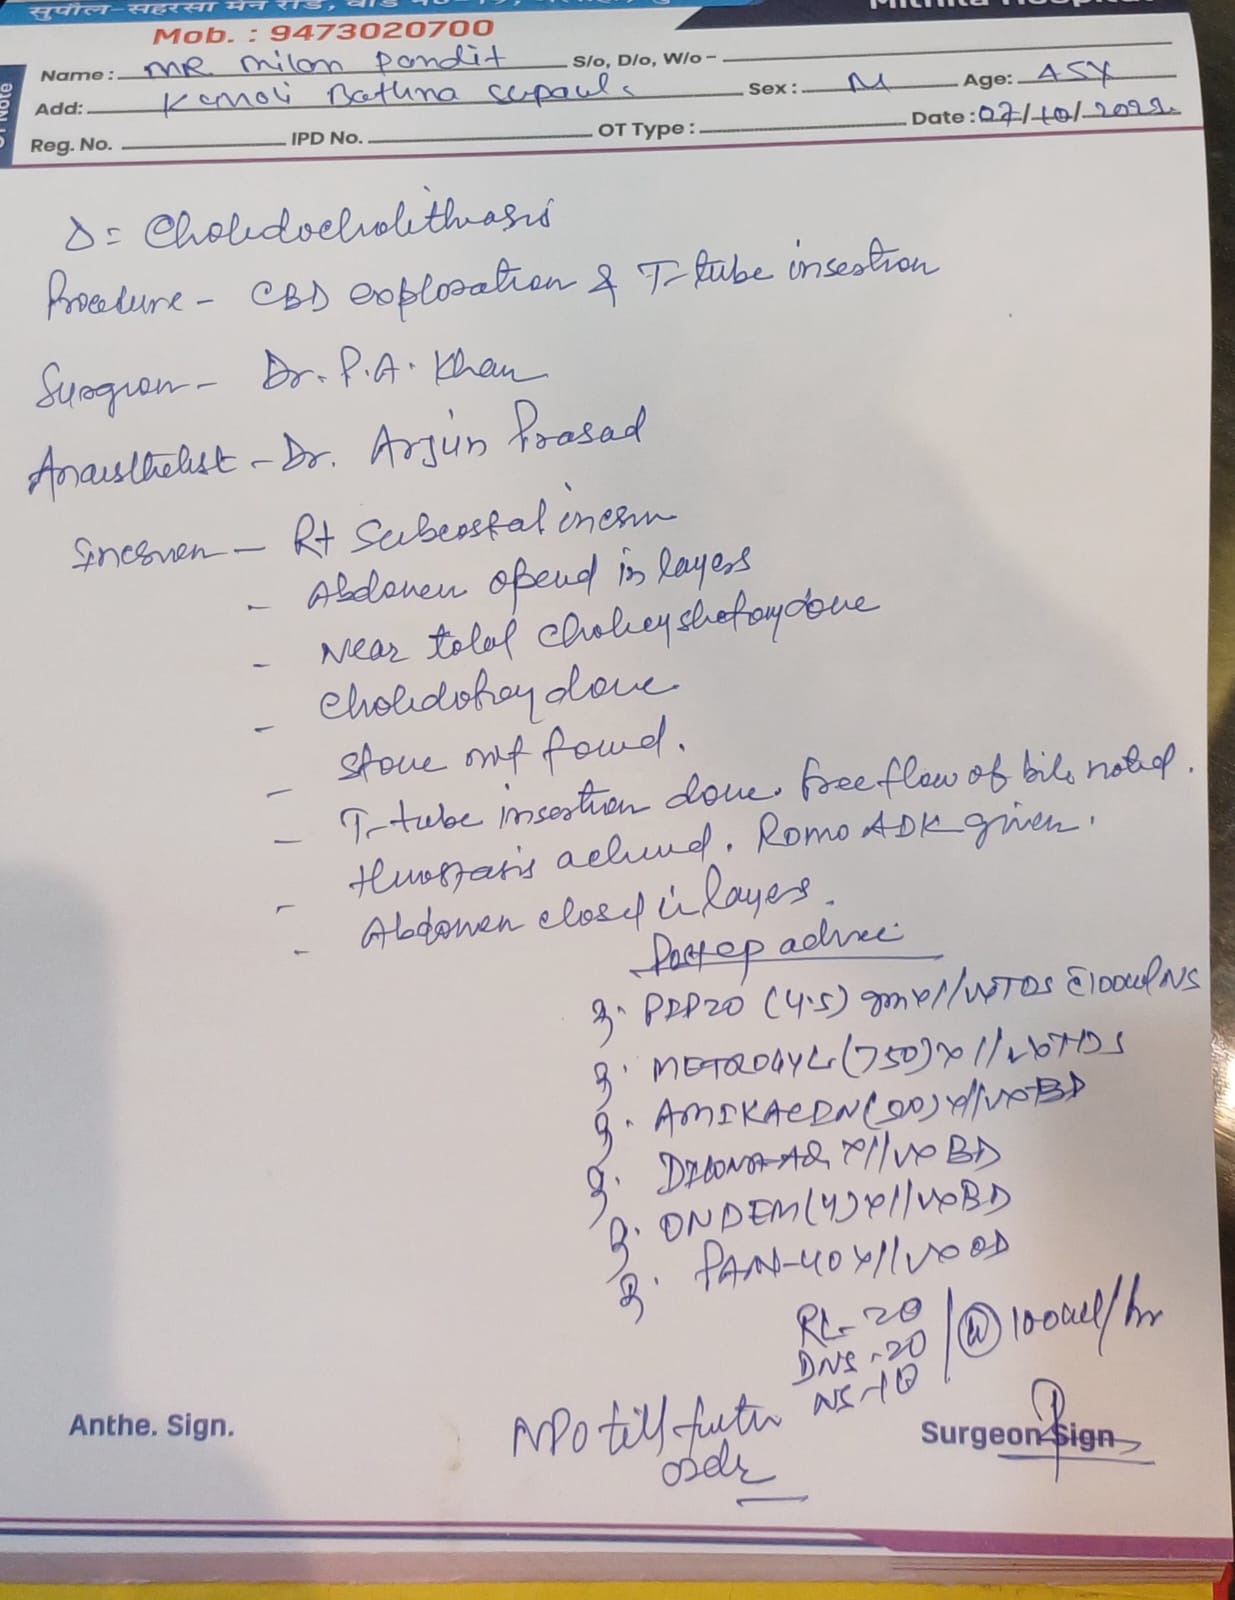 सुपौल-सहरसा मेन रोड, वार्ड नं०
Mithila Hospital
Mob. : 9473020700
Name : MR Milan Pandit S/o, D/o, W/o -
Add: Bathna Supaul Sex : M Age: 45Y
Reg. No. IPD No. OT Type : Date : 07/10/202
OT Note
Δ = Choledocholithiasis
Procedure - CBD exploration & T-tube insertion
Surgeon - Dr. P.A. Khan
Anaesthetist - Dr. Arjun Prasad
Incision - Rt Subcostal incision
- Abdomen opend in layers
- Near total done
- done
- Stone not found.
- T-tube insertion done. Free flow of bile noted.
- Hemostasis achieved. Romo ADK given.
- Abdomen closed in layers.
Post op advice
PIPZO (4.5) gm x I/V x TDS c̄ 100ml NS
METROGYL (750) x I/V x TDS
AMIKACIN (500) x I/V x BD
x I/V x BD
ONDEM (4) x I/V x BD
PAN-40 x I/V x OD
RL - 2
DNS - 2 @ 100ml/hr
NS - 1
NPO till further
order
Anthe. Sign. Surgeon Sign